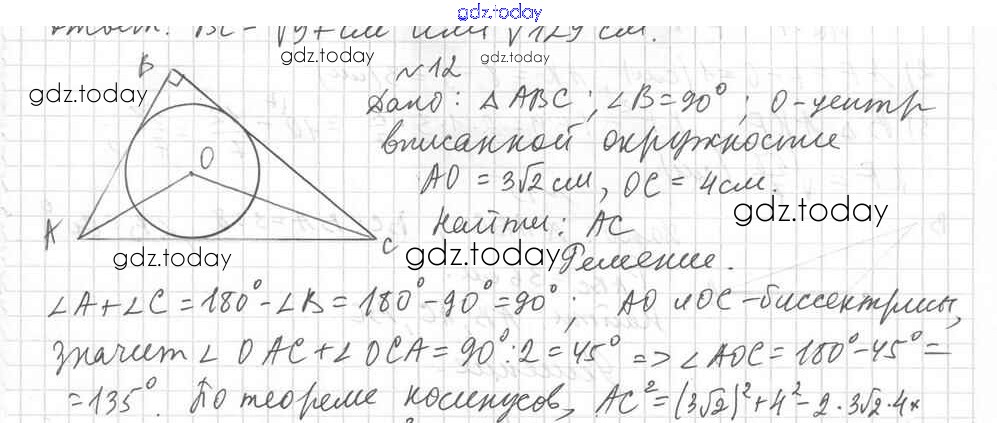 gdz.today
ответ: BC = √94 см или √129 см.
gdz.today
gdz.today
№12
B
gdz.today
Дано: △ABC; ∠B=90°; O-центр
вписанной окружности
O
AO = 3√2 см, OC = 4см.
gdz.today
Найти: AC
A
C
gdz.today
gdz.today
Решение.
∠A+∠C=180°-∠B=180°-90°=90°; AO и OC-биссектрисы,
значит ∠OAC+∠OCA=90°:2=45° => ∠AOC=180°-45°=
=135°. По теореме косинусов, AC²=(3√2)²+4²-2·3√2·4×